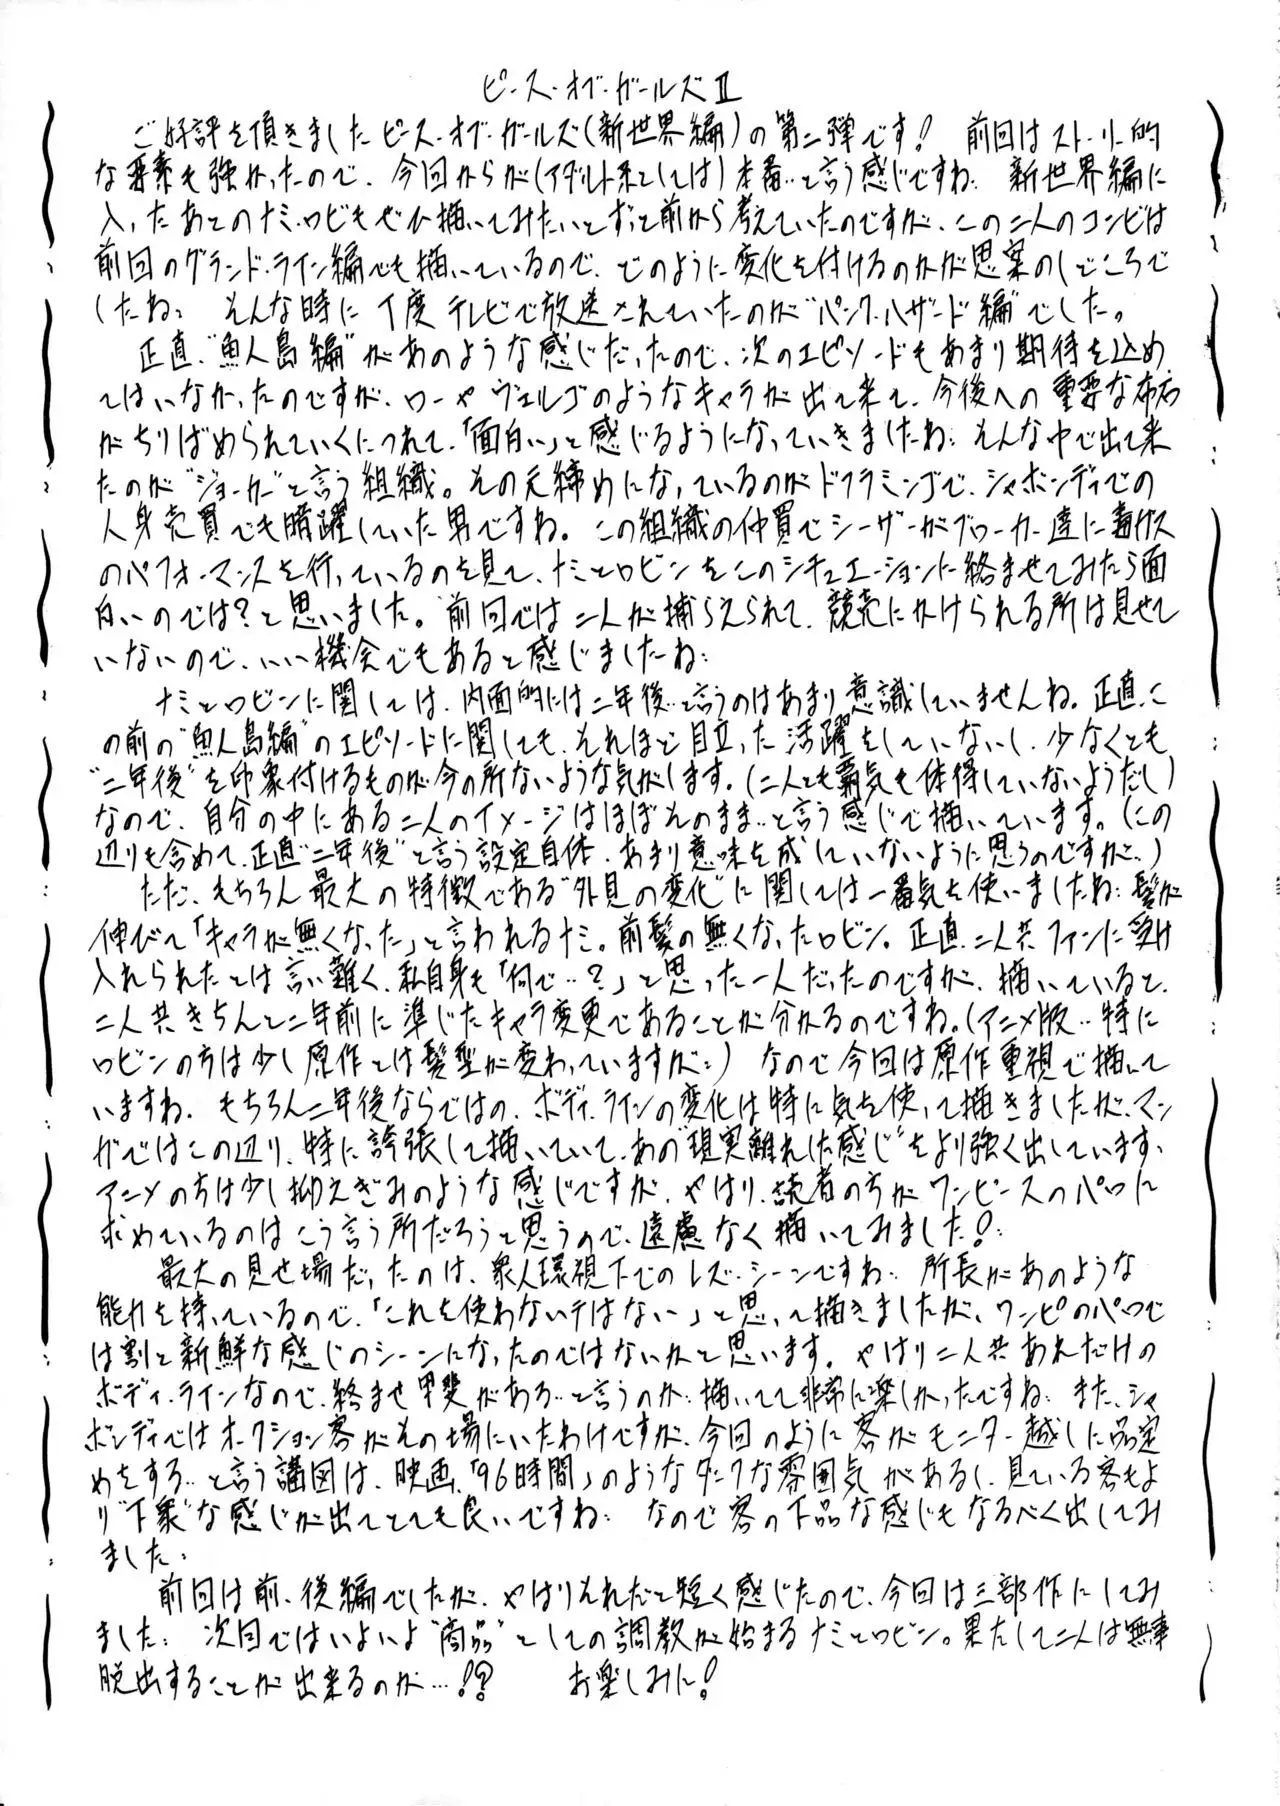 ピース・オブ・ガールズⅡ
ご好評を頂きましたピース・オブ・ガールズ(新世界編)の第二弾です! 前回はストーリー的
な要素も強かったので、今回からが(アダルト系としては)本番‥と言う感じですね‥ 新世界編に
入ったあとのナミ・ロビもぜひ描いてみたいとずっと前から考えていたのですが、この二人のコンビは
前回のグランド・ライン編でも描いているので、どのように変化を付けるのかが思案のしどころで
したね‥ そんな時に丁度テレビで放送されていたのが“パンク・ハザード編”でした。
正直、“魚人島編”があのような感じだったので、次のエピソードもあまり期待を込め
てはいなかったのですが、ローやヴェルゴのようなキャラが出て来て、今後への重要な布石
がちりばめられていくにつれて、「面白い」と感じるようになっていきましたね‥ そんな中で出て来
たのが“ジョーカー”と言う組織。その元締めになっているのがドフラミンゴで、シャボンディでの
人身売買でも暗躍していた男ですね。この組織の仲買でシーザーがブローカー達に毒ガス
のパフォーマンスを行っているのを見て、ナミとロビンをこのシチュエーションに絡ませてみたら面
白いのでは?と思いました。前回では二人が捕らえられて、競売にかけられる所は見せて
いないので、いい機会でもあると感じましたね‥
ナミとロビンに関しては、内面的には二年後‥と言うのはあまり意識していませんね。正直、こ
の前の“魚人島編”のエピソードに関しても、それほど目立った活躍をしていないし、少なくとも
“二年後”を印象付けるものが今の所ないような気がします。(二人とも覇気も体得していないようだし)
なので、自分の中にある二人のイメージはほぼそのまま‥と言う感じで描いています。(この
辺りも含めて、正直“二年後”と言う設定自体、あまり意味を成していないように思うのですが‥)
ただ、もちろん最大の特徴である“外見の変化”に関しては一番気を使いましたね‥髪が
伸びて「キャラが無くなった」と言われるナミ。前髪の無くなったロビン。正直、二人共ファンに受け
入れられたとは言い難く、私自身も「何で‥?」と思った一人だったのですが、描いていると、
二人共きちんと二年前に準じたキャラ変更であることが分かるのですね。(アニメ版‥特に
ロビンの方は少し原作とは髪型が変わっていますが‥) なので今回は原作重視で描いて
いますね. もちろん二年後ならではの、ボディ・ラインの変化は特に気を使って描きましたが、マン
ガではこの辺り、特に誇張して描いていて、あの“現実離れした感じ”をより強く出しています、
アニメの方は少し抑えぎみのような感じですが、やはり、読者の方がワンピースのパロに
求めているのはこう言う所だろうと思うので、遠慮なく描いてみました!‥
最大の見せ場だったのは、衆人環視下でのレズ・シーンですね‥ 所長があのような
能力を持っているので、「これを使わないテはない」と思って描きましたが、ワンピのパロで
は割と新鮮な感じのシーンになったのではないかと思います。やはり二人共あれだけの
ボディ・ラインなので、絡ませ甲斐がある‥と言うのか‥描いてて非常に楽しかったですね‥ また、シャ
ボンディではオークション客がその場にいたわけですが、今回のように客がモニター越しに品定
めをする‥と言う講図は、映画、「96時間」のようなダークな雰囲気があるし、見ている客もよ
り“下衆”な感じが出てとても良いですね‥ なので客の下品な感じもなるべく出してみ
ました‥
前回は前、後編でしたが、やはりそれだと短く感じたので、今回は三部作にしてみ
ました‥ 次回ではいよいよ“商品”としての調教が始まるナミとロビン。果たして二人は無事
脱出することが出来るのか…!? お楽しみに!